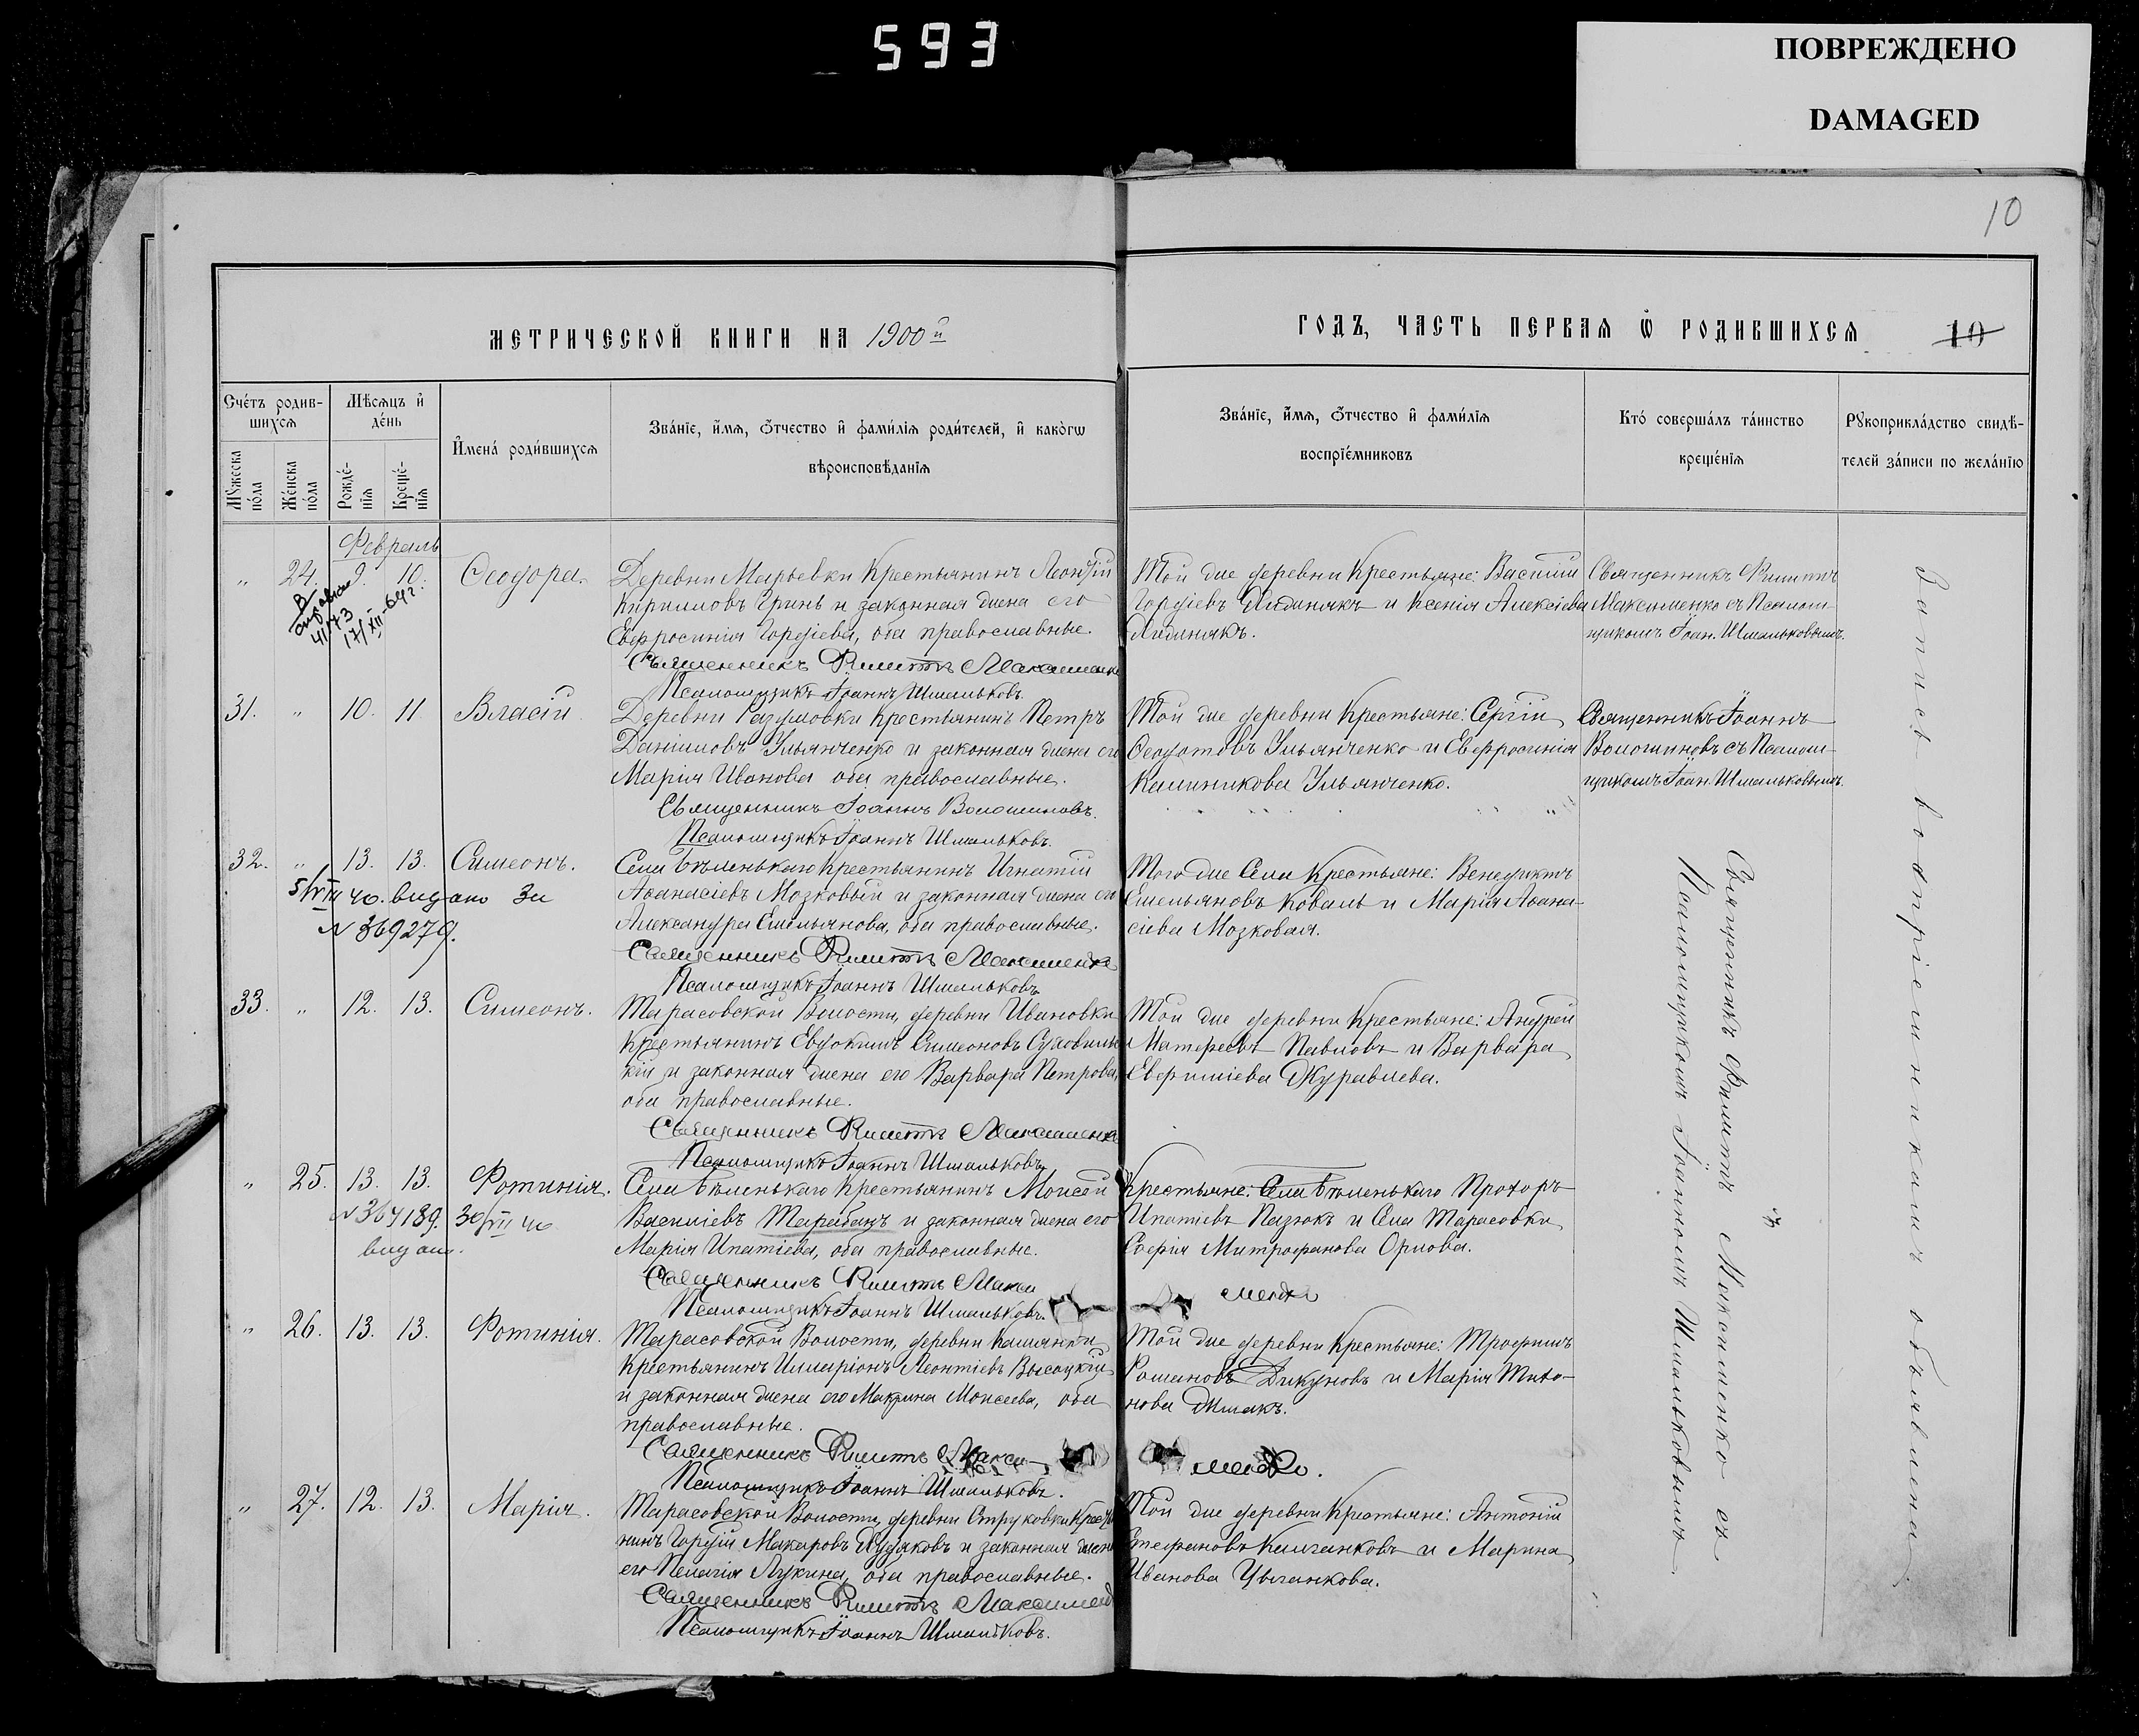 593
ПОВРЕЖДЕНО
DAMAGED
10
МЕТРИЧЕСКОЙ КНИГИ НА 1900й
ГОДЪ, ЧАСТЬ ПЕРВАЯ Ѡ РОДИВШИХСЯ
10
Счетъ родив-
шихся
Мѣсяцъ и
день
Мужеска
пола
Женска
пола
Рожде-
нія
Креще-
нія
Имена родившихся
Званіе, имя, отчество и фамилія родителей, и какогѡ
вѣроисповѣданія
Званіе, имя, отчество и фамилія
воспріемниковъ
Кто совершалъ таинство
крещенія
Рукоприкладство свидѣ-
телей записи по желанію
Февраль
„ 24. 9. 10. Ѳеодора.
17/XII-64г.
Деревни Марьевки крестьянинъ Леонтій
Кирилловъ Гринь и законная жена его
Евфросинія Гордіева, оба православные.
Священникъ Филиппъ Максименко
Псаломщикъ Іоаннъ Шмальковъ.
Той же деревни крестьяне: Василій
Гордіевъ Лидинякъ и Ксенія Алексіева
Лидинякъ.
Священникъ Филиппъ
Максименко съ Псалом-
щикомъ Іоан. Шмальковымъ.
31. „ 10. 11. Власій.
Деревни Разумовки крестьянинъ Петръ
Даніиловъ Ульянченко и законная жена его
Марія Иванова оба православные.
Священникъ Іоаннъ Волошиновъ.
Псаломщикъ Іоаннъ Шмальковъ.
Той же деревни крестьяне: Сергій
Ѳеодотовъ Ульянченко и Евфросинія
Калиникова Ульянченко.
Священникъ Іоаннъ
Волошиновъ съ Псалом-
щикомъ Іоан. Шмальковымъ.
32. „ 13. 13. Симеонъ.
5/VIII 40. видано За
№ 369279.
Села Бѣленькаго крестьянинъ Игнатій
Аѳанасіевъ Мозковый и законная жена его
Александра Емельянова, оба православные.
Священникъ Филиппъ Максименко
Псаломщикъ Іоаннъ Шмальковъ
Того же Села крестьяне: Венедиктъ
Емельяновъ Коваль и Марія Аѳана-
сіева Мозковая.
33. „ 12. 13. Симеонъ.
Тарасовской Волости, деревни Ивановки
крестьянинъ Евдокимъ Симеоновъ
и законная жена его Варвара Петрова,
оба православные.
Священникъ Филиппъ Максименко
Псаломщикъ Іоаннъ Шмальковъ
Той же деревни крестьяне: Андрей
Матѳеевъ Павловъ и Варвара
Евфиміева Журавлева.
„ 25. 13. 13. Фотинія.
№ 364189. 30/VII 40
видано.
Села Бѣленькаго крестьянинъ Моисей
Василіевъ Тарабанъ и законная жена его
Марія Ипатіева, оба православные.
Священникъ Филиппъ Макси
менко
Псаломщикъ Іоаннъ Шмальковъ.
Крестьяне: Села Бѣленькаго Прохоръ
Ипатіевъ Пазюкъ и Села Тарасовки
Софія Митрофанова Орлова.
„ 26. 13. 13. Фотинія.
Тарасовской Волости, деревни Камянки
крестьянинъ Иларіонъ Леонтіевъ Высоцкій
и законная жена его Макрина Моисеева, оба
православные.
Священникъ Филиппъ Макси-
менко.
Псаломщикъ Іоаннъ Шмальковъ.
Той же деревни крестьяне: Трофимъ
Романовъ Дикуновъ и Марія Тихо-
нова
„ 27. 12. 13. Марія.
Тарасовской Волости, деревни Струковки
Гордій Макаровъ Худяковъ и законная жена
его Пелагія Лукина, оба православные.
Священникъ Филиппъ Максименко
Псаломщикъ Іоаннъ Шмальковъ.
Той же деревни крестьяне: Антоній
Стефановъ Калганковъ и Марина
Иванова Цыганкова.
Священникъ Филиппъ Максименко съ
Псаломщикомъ Іоанномъ Шмальковымъ
Запись воспріемниками объявлена.